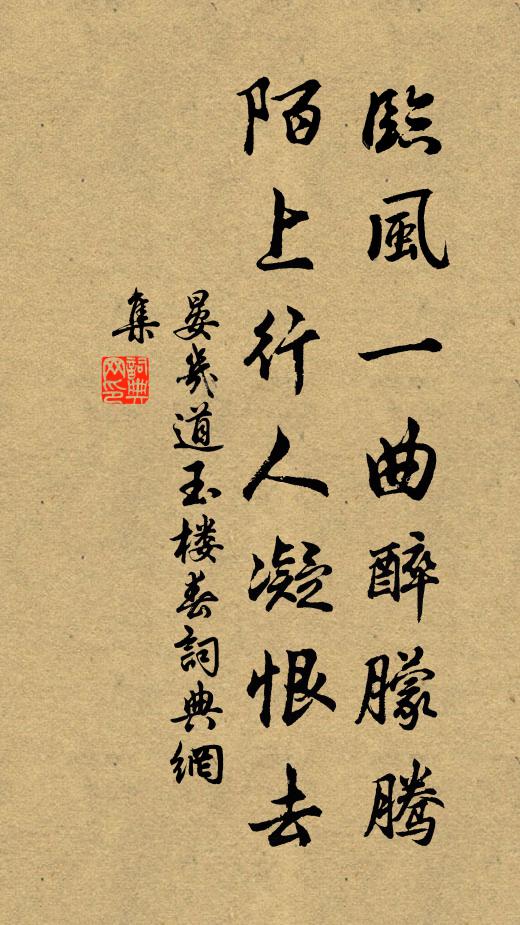 臨風一曲醉朦騰
陌上行人凝恨去
晏幾道玉楼春詞典網
集
詞典網印